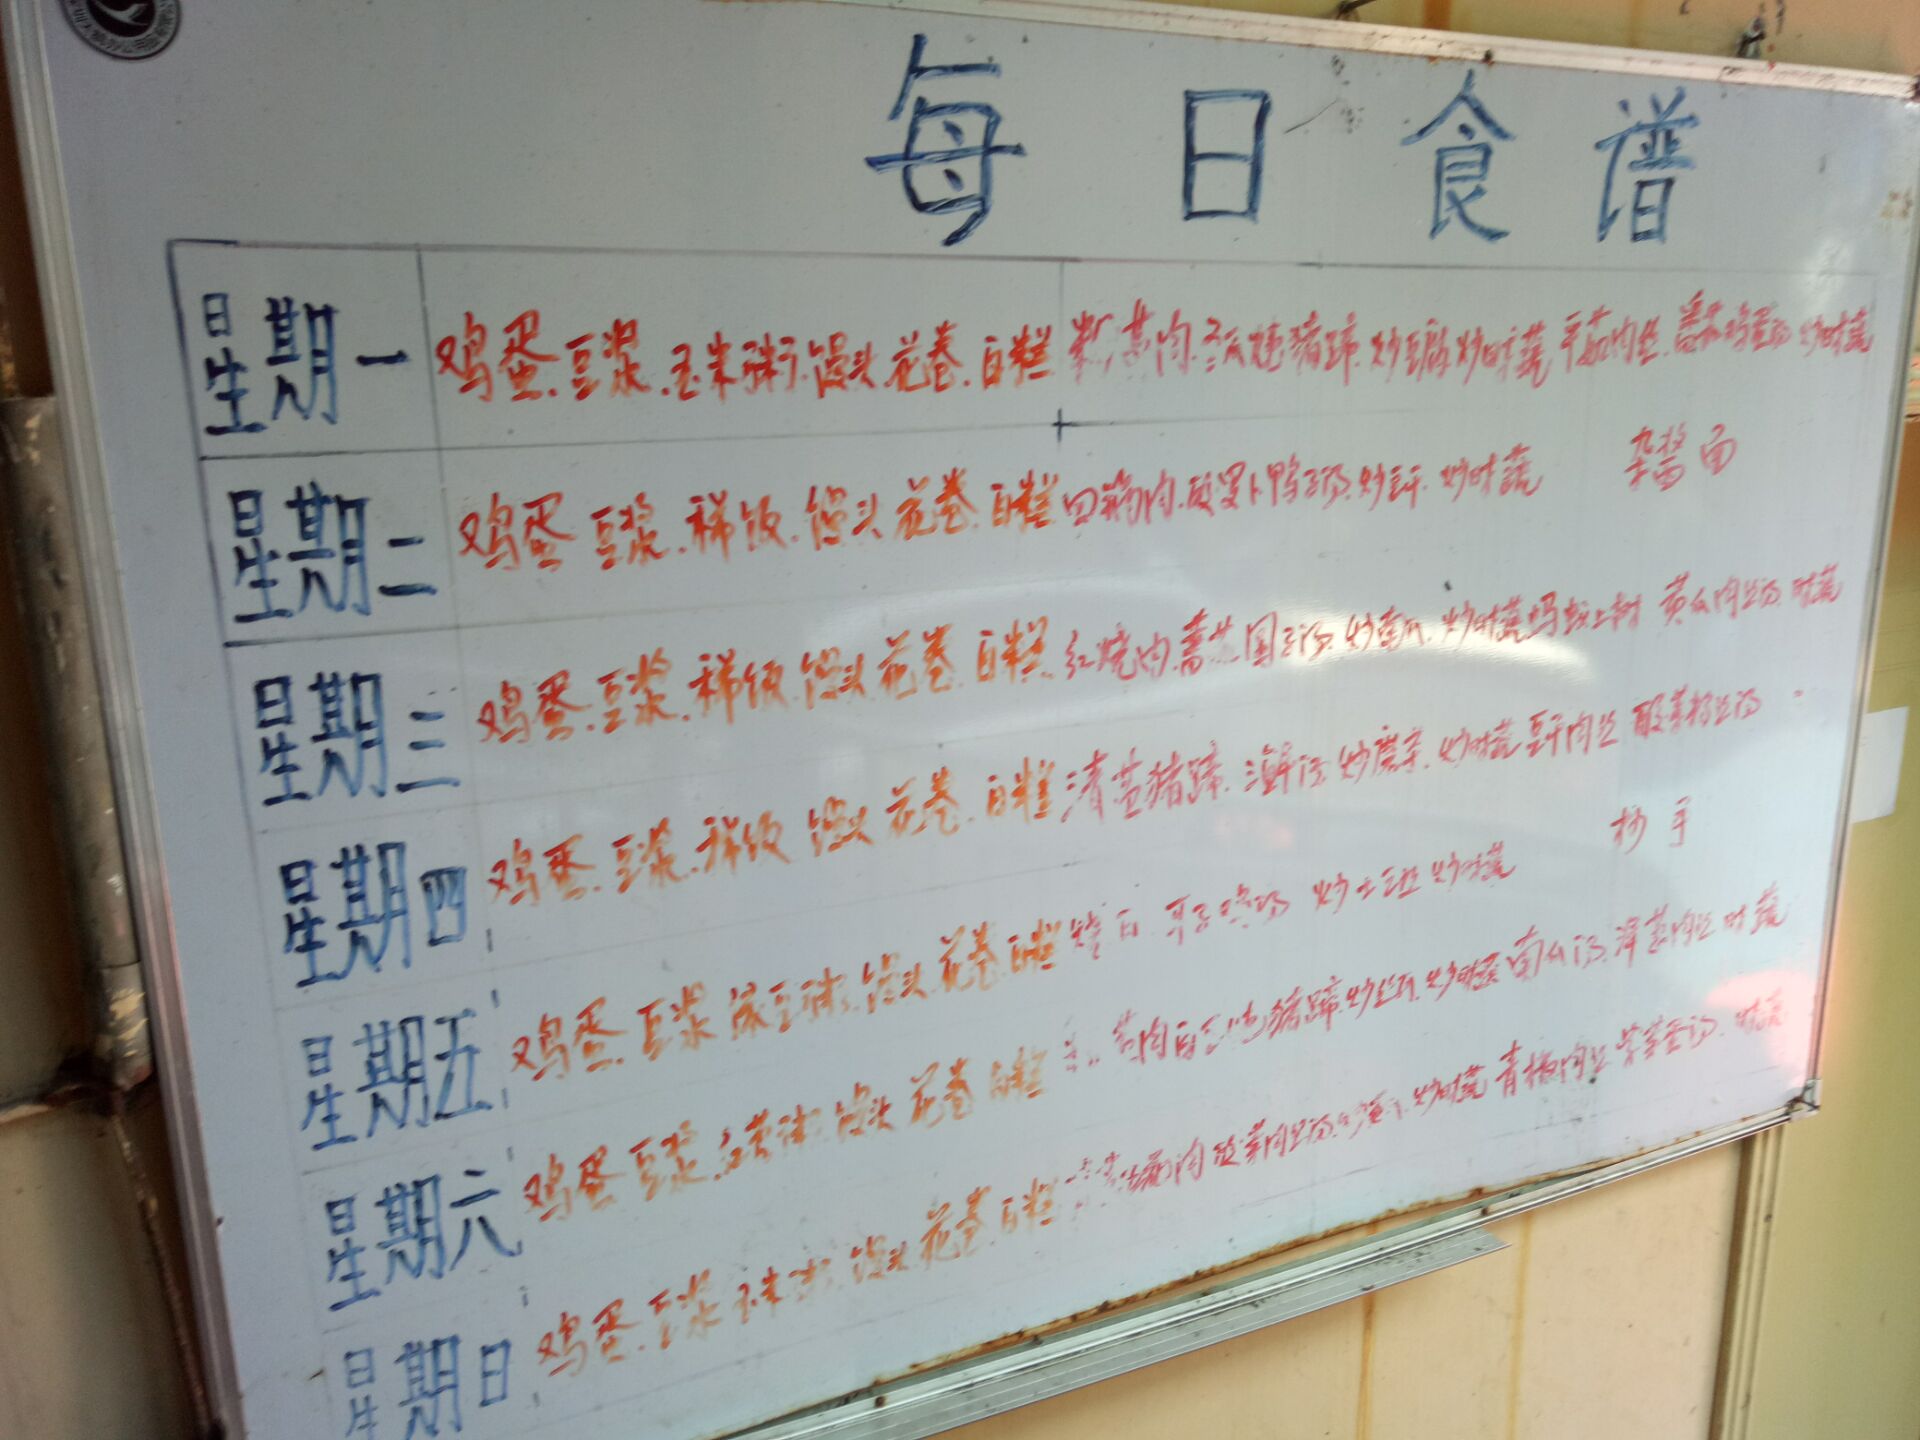 每日食谱
星期一 鸡蛋.豆浆.玉米粥.馒头.花卷.白糕 肉.炖猪蹄.炒时蔬 平菇肉丝.番茄鸡蛋汤 炒时蔬
星期二 鸡蛋 豆浆.稀饭.馒头 花卷.白糕 回锅肉.酸萝卜鸭子汤.炒豆干.炒时蔬 杂酱面
星期三 鸡蛋.豆浆.稀饭.馒头 花卷.白糕 红烧肉.圆子汤.炒南瓜.炒时蔬 蚂蚁上树 黄瓜肉丝汤.时蔬
星期四 鸡蛋.豆浆.稀饭 馒头 花卷.白糕 猪蹄.海鲜汤 炒魔芋.炒时蔬 豆干肉丝 酸菜粉丝汤
星期五 鸡蛋.豆浆 绿豆粥.馒头.花卷 白糕 烧白 炒土豆丝 炒时蔬 抄手
星期六 鸡蛋 豆浆 馒头 花卷 白糕 肉 猪蹄 炒时蔬 南瓜汤.洋葱肉丝 时蔬
星期日 鸡蛋.豆浆 玉米粥.馒头 花卷 白糕 肉 酸菜肉丝汤 炒时蔬 青椒肉丝 紫菜蛋汤.时蔬